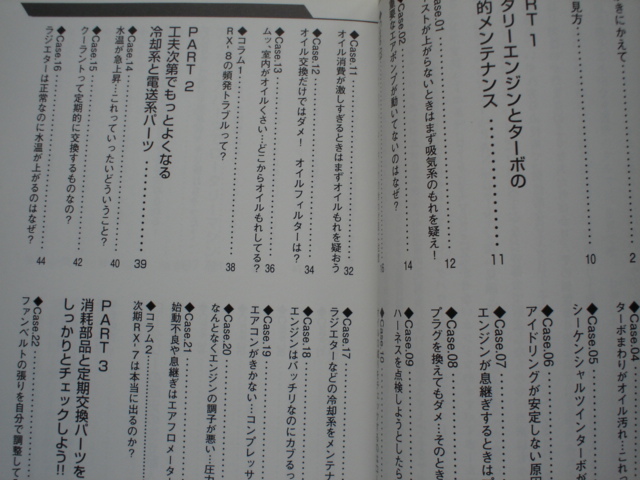 きにかえて………2
見方………10
ART 1
タリーエンジンとターボの
的メンテナンス………11
Case.01………
ーストが上がらないときはまず吸気系のもれを疑え！ 12
Case.02………
なエアポンプが動いてないのはなぜ？ 14
◆Case.04………
ターボまわりがオイル汚れ…これっ
◆Case.05………
シーケンシャルツインターボが
◆Case.06………
アイドリングが安定しない原因
◆Case.07………
エンジンが息継ぎするときは
◆Case.08………
プラグを換えてもダメ…そのとき
◆Case.09………
ハーネスを点検しようとしたら
◆Case.10
◆Case.11………
オイル消費が激しすぎるときはまずオイルもれを疑おう 32
◆Case.12………
オイル交換だけではダメ！　オイルフィルターは？ 34
◆Case.13………
ムッ、室内がオイルくさい…どこからオイルもれしてる？ 36
◆コラム1………
RX-8の頻発トラブルって？ 38
PART 2
工夫次第でもっとよくなる
冷却系と電送系パーツ………39
◆Case.14………
水温が急上昇…これっていったいどういうこと？ 40
◆Case.15………
クーラントって定期的に交換するものなの？ 42
◆Case.16………
ラジエターは正常なのに水温が上がるのはなぜ？ 44
◆Case.17………
ラジエターなどの冷却系をメンテナ
◆Case.18………
エンジンはバッチリなのにカブるっ
◆Case.19………
エアコンがきかない…コンプレッサ
◆Case.20………
なんとなくエンジンの調子が悪い…圧力
◆Case.21………
始動不良や息継ぎはエアフロメーター
◆コラム2………
次期RX-7は本当に出るのか？
PART 3
消耗部品と定期交換パーツを
しっかりとチェックしよう!!
◆Case.22………
ファンベルトの張りを自分で調整して